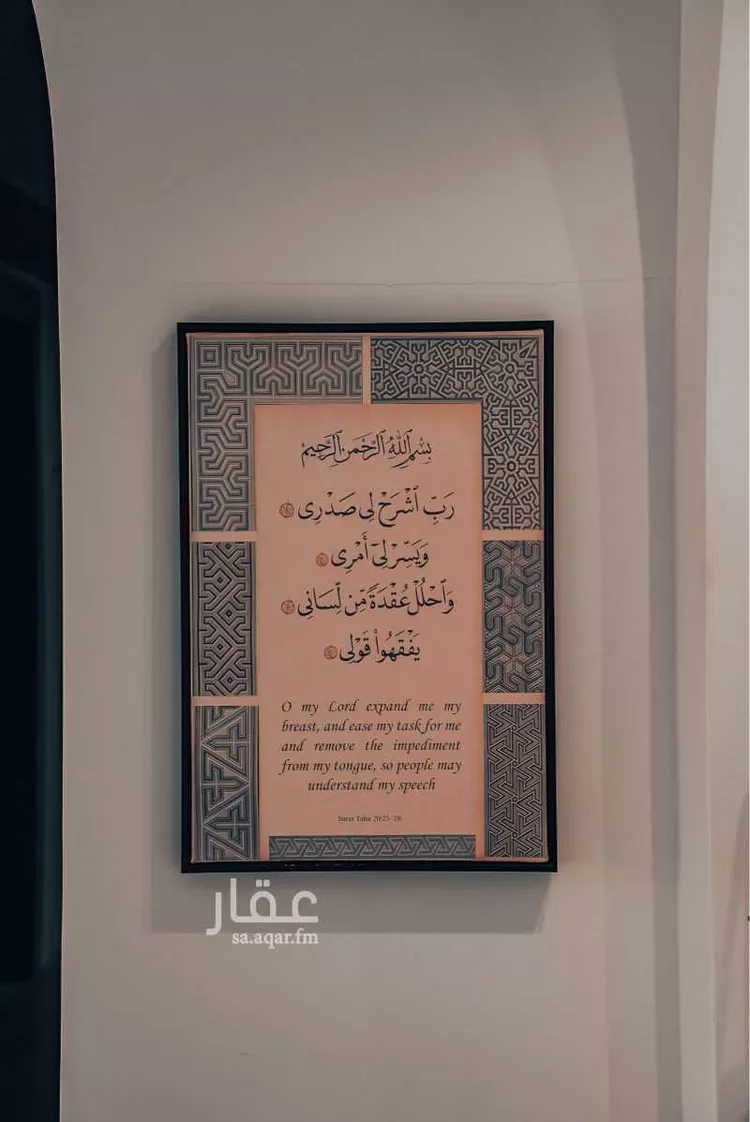 بِسْمِ ٱللَّهِ ٱلرَّحْمَٰنِ ٱلرَّحِيمِ
رَبِّ ٱشْرَحْ لِى صَدْرِى
وَيَسِّرْ لِىٓ أَمْرِى
وَٱحْلُلْ عُقْدَةً مِّن لِّسَانِى
يَفْقَهُوا۟ قَوْلِى
O my Lord expand me my
breast, and ease my task for me
and remove the impediment
from my tongue, so people may
understand my speech
Surat Taha 20:25- 28
عقار
sa.aqar.fm